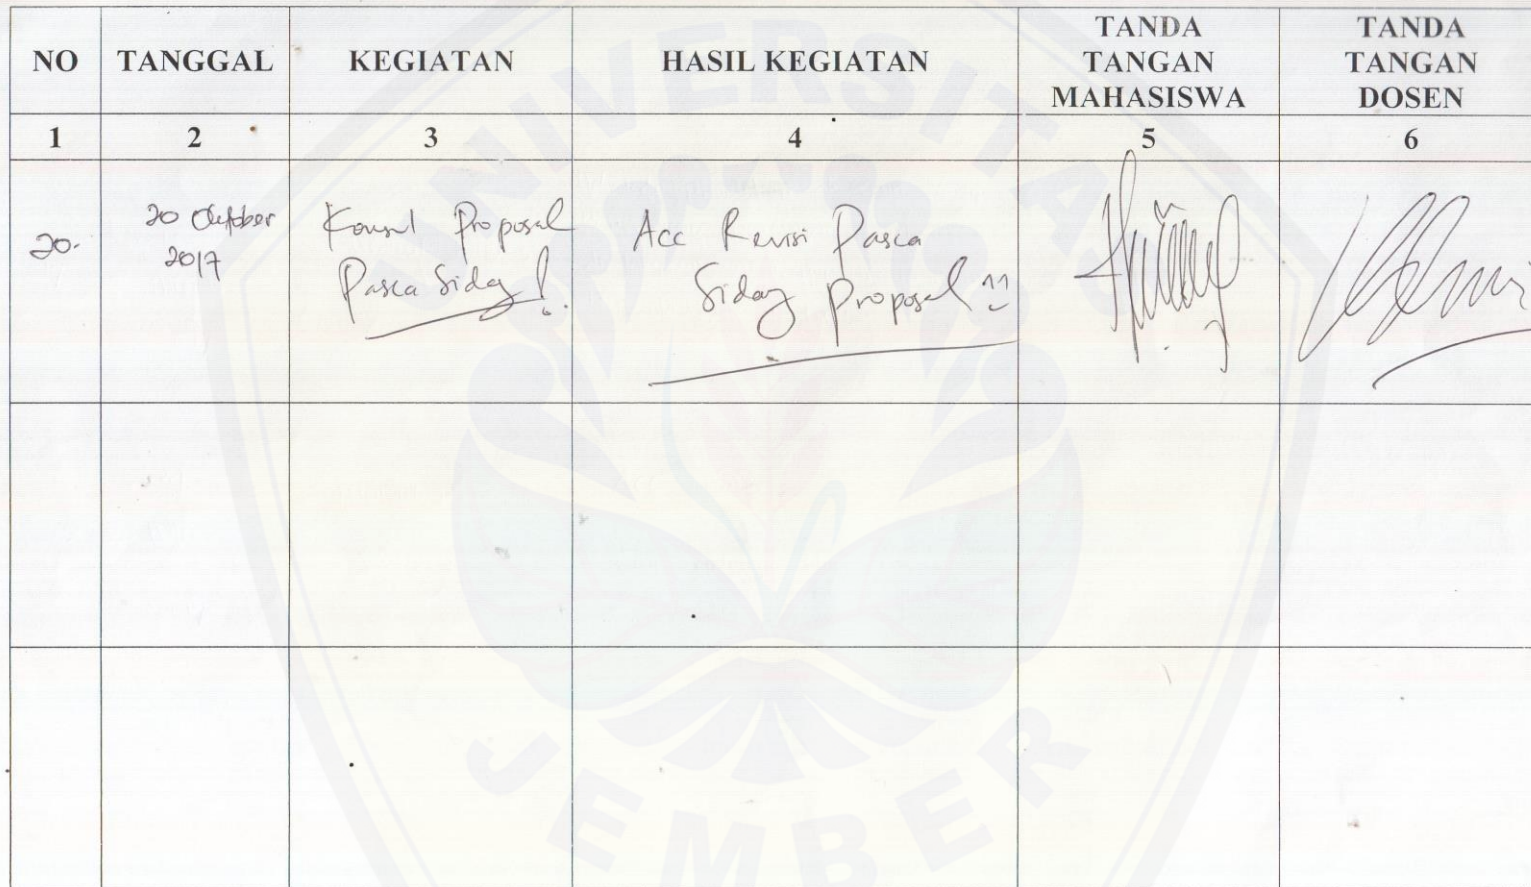 NO TANGGAL KEGIATAN HASIL KEGIATAN TANDA TANGAN MAHASISWA TANDA TANGAN DOSEN
1 2 3 4 5 6
20. 20 Oktober 2017 Konsul Proposal Pasca Sidang! Acc Revisi Pasca Sidang Proposal
UNIVERSITAS
JEMBER